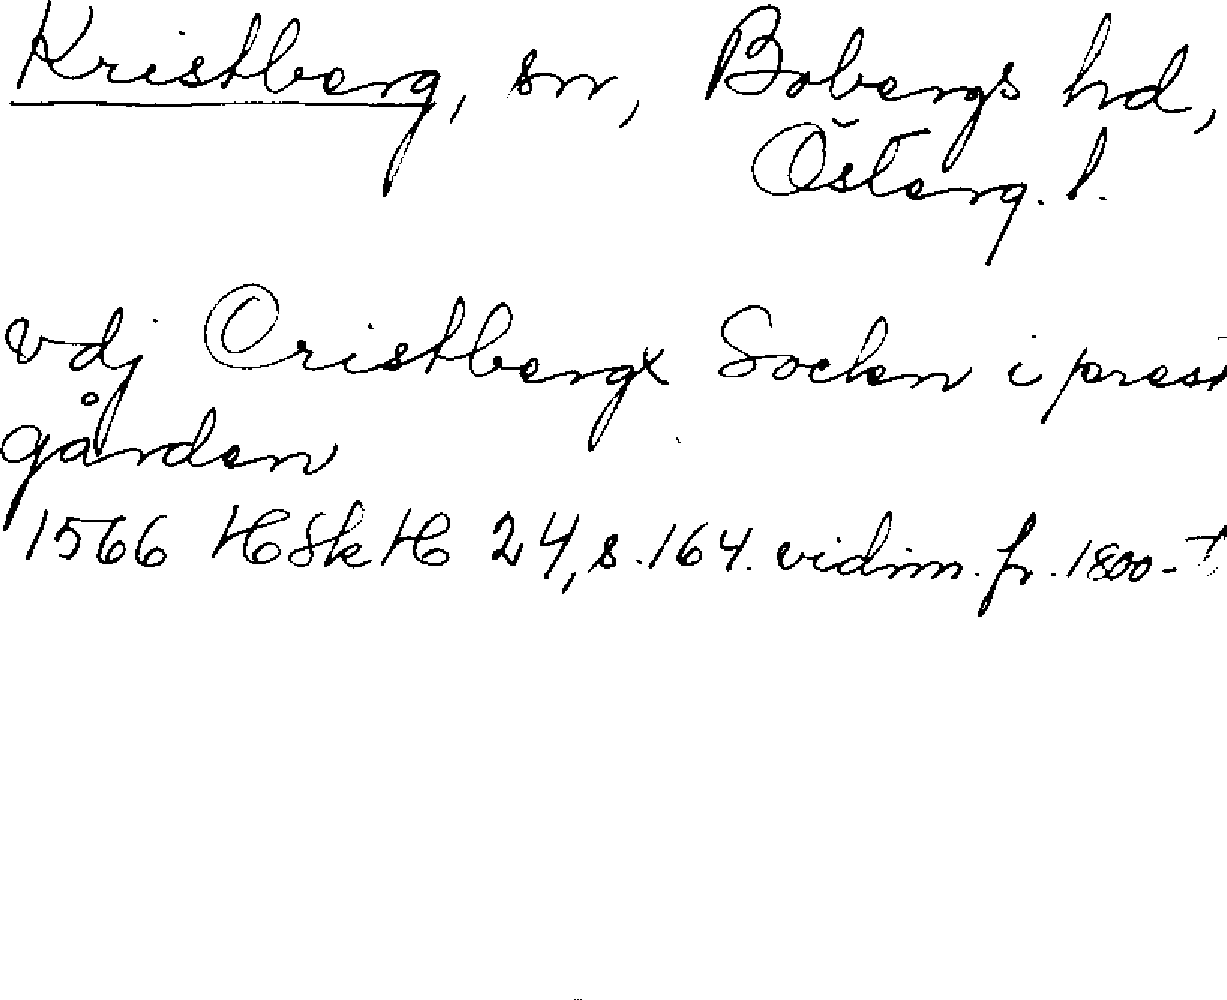 Kristberg, sn, Bobergs hd,
Österg. l.
vdj Cristbergx Socken i prest
gården
1566 HSkH 24, s. 164. vidim. fr. 1800-t